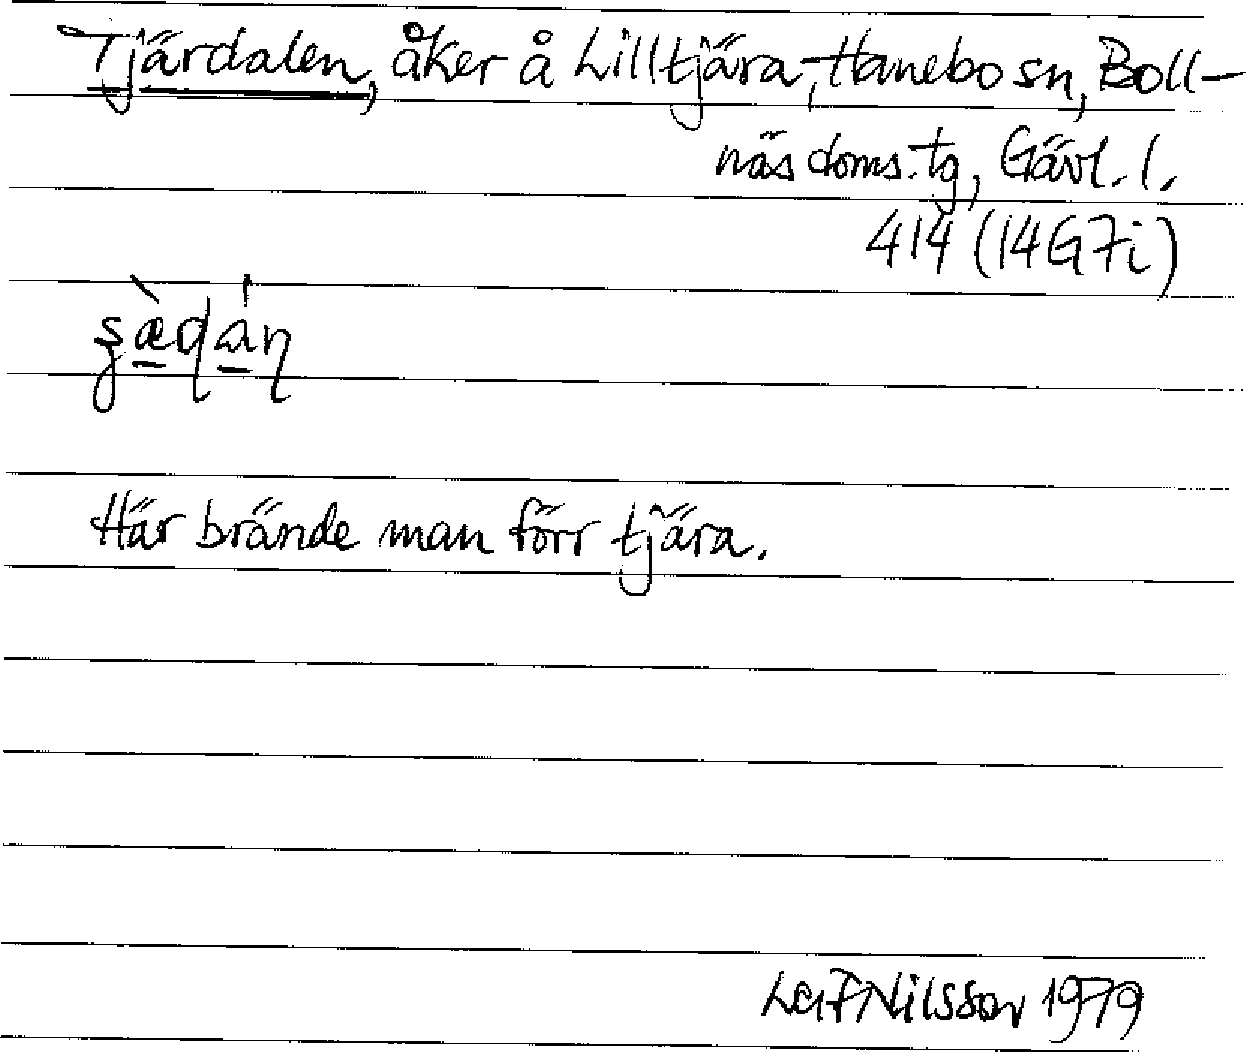 Tjärdalen, åker å Lilltjära, Hanebo sn, Boll-
näs doms. tg, Gävl. l.
414 (14G7i)
Här brände man förr tjära.
Leif Nilsson 1979